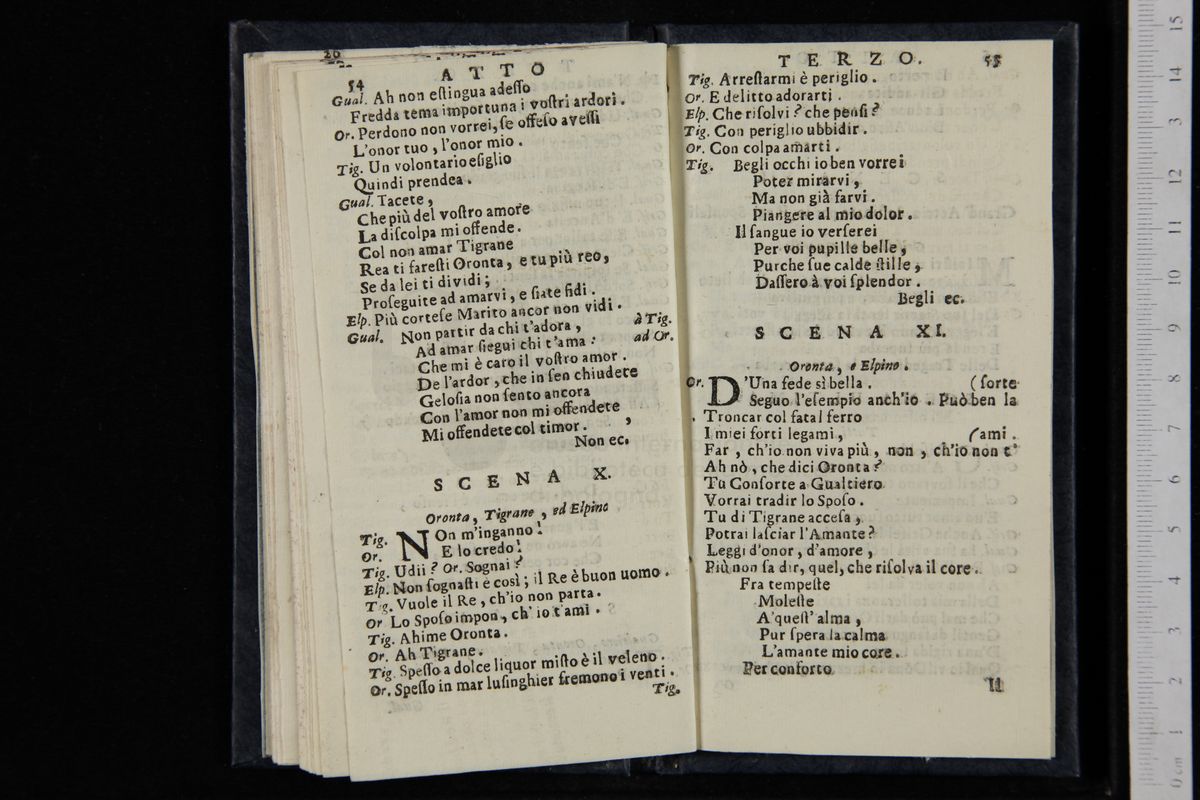 20
54
ATTO
Gual. Ah non eſtingua adeſſo
Fredda tema importuna i voſtri ardori.
Or. Perdono non vorrei, ſe offeſo aveſſi
L'onor tuo, l'onor mio.
Tig. Un volontario eſiglio
Quindi prendea.
Gual. Tacete,
Che più del voſtro amore
La diſcolpa mi offende.
Col non amar Tigrane
Rea ti fareſti Oronta, e tu più reo,
Se da lei ti dividi;
Proſeguite ad amarvi, e ſiate fidi.
Elp. Più corteſe Marito ancor non vidi.
Gual. Non partir da chi t'adora, à Tig.
Ad amar ſiegui chi t'ama: ad Or.
Che mi è caro il voſtro amor.
De l'ardor, che in ſen chiudete
Geloſia non ſento ancora
Con l'amor non mi offendete
Mi offendete col timor.
Non ec.
SCENA X.
Oronta, Tigrane, ed Elpino
Tig. NOn m'inganno!
Or. E lo credo!
Tig. Udii? Or. Sognai?
Elp. Non ſognaſti è così; il Re è buon uomo.
Tig. Vuole il Re, ch'io non parta.
Or Lo Spoſo impon, ch'io t'ami.
Tig. Ahime Oronta.
Or. Ah Tigrane.
Tig. Speſſo a dolce liquor miſto è il veleno.
Or. Speſſo in mar luſinghier fremono i venti.
Tig.
TERZO.
55
Tig. Arreſtarmi è periglio.
Or. E delitto adorarti.
Elp. Che riſolvi? che penſi?
Tig. Con periglio ubbidir.
Or. Con colpa amarti.
Tig. Begli occhi io ben vorrei
Poter mirarvi,
Ma non già farvi.
Piangere al mio dolor.
Il ſangue io verſerei
Per voi pupille belle,
Purche ſue calde ſtille,
Daſſero à voi ſplendor.
Begli ec.
SCENA XI.
Oronta, e Elpino.
Or. D'Una fede sì bella. (forte
Seguo l'eſempio anch'io. Può ben la
Troncar col fatal ferro
I miei forti legami, (ami.
Far, ch'io non viva più, non, ch'io non t'
Ah nò, che dici Oronta?
Tu Conſorte a Gualtiero
Vorrai tradir lo Spoſo.
Tu di Tigrane acceſa,
Potrai laſciar l'Amante?
Leggi d'onor, d'amore,
Più non ſa dir, quel, che riſolva il core.
Fra tempeſte
Moleſte
A'queſt'alma,
Pur ſpera la calma
L'amante mio core.
Per conforto
Il
15
14
13
12
11
10
9
8
7
6
5
4
3
2
1
0 cm